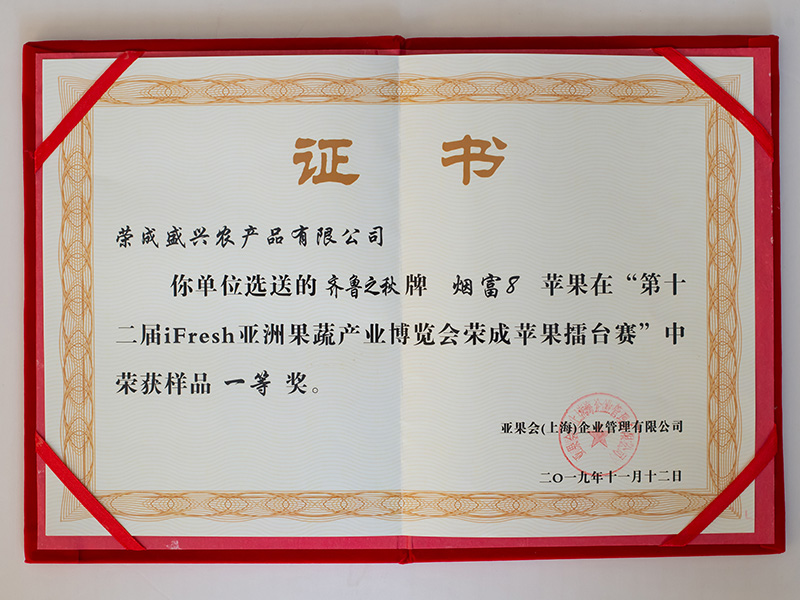 证书
荣成盛兴农产品有限公司
你单位选送的 齐鲁之秋牌 烟富8 苹果在“第十
二届iFresh亚洲果蔬产业博览会荣成苹果擂台赛”中
荣获样品 一等 奖。
亚果会(上海)企业管理有限公司
二〇一九年十一月十二日